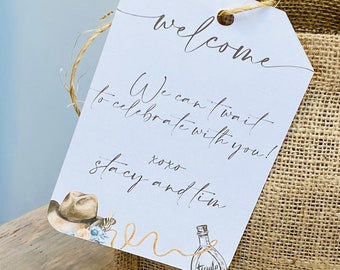 welcome
We can't wait
to celebrate with you!
xoxo
stacy and tim